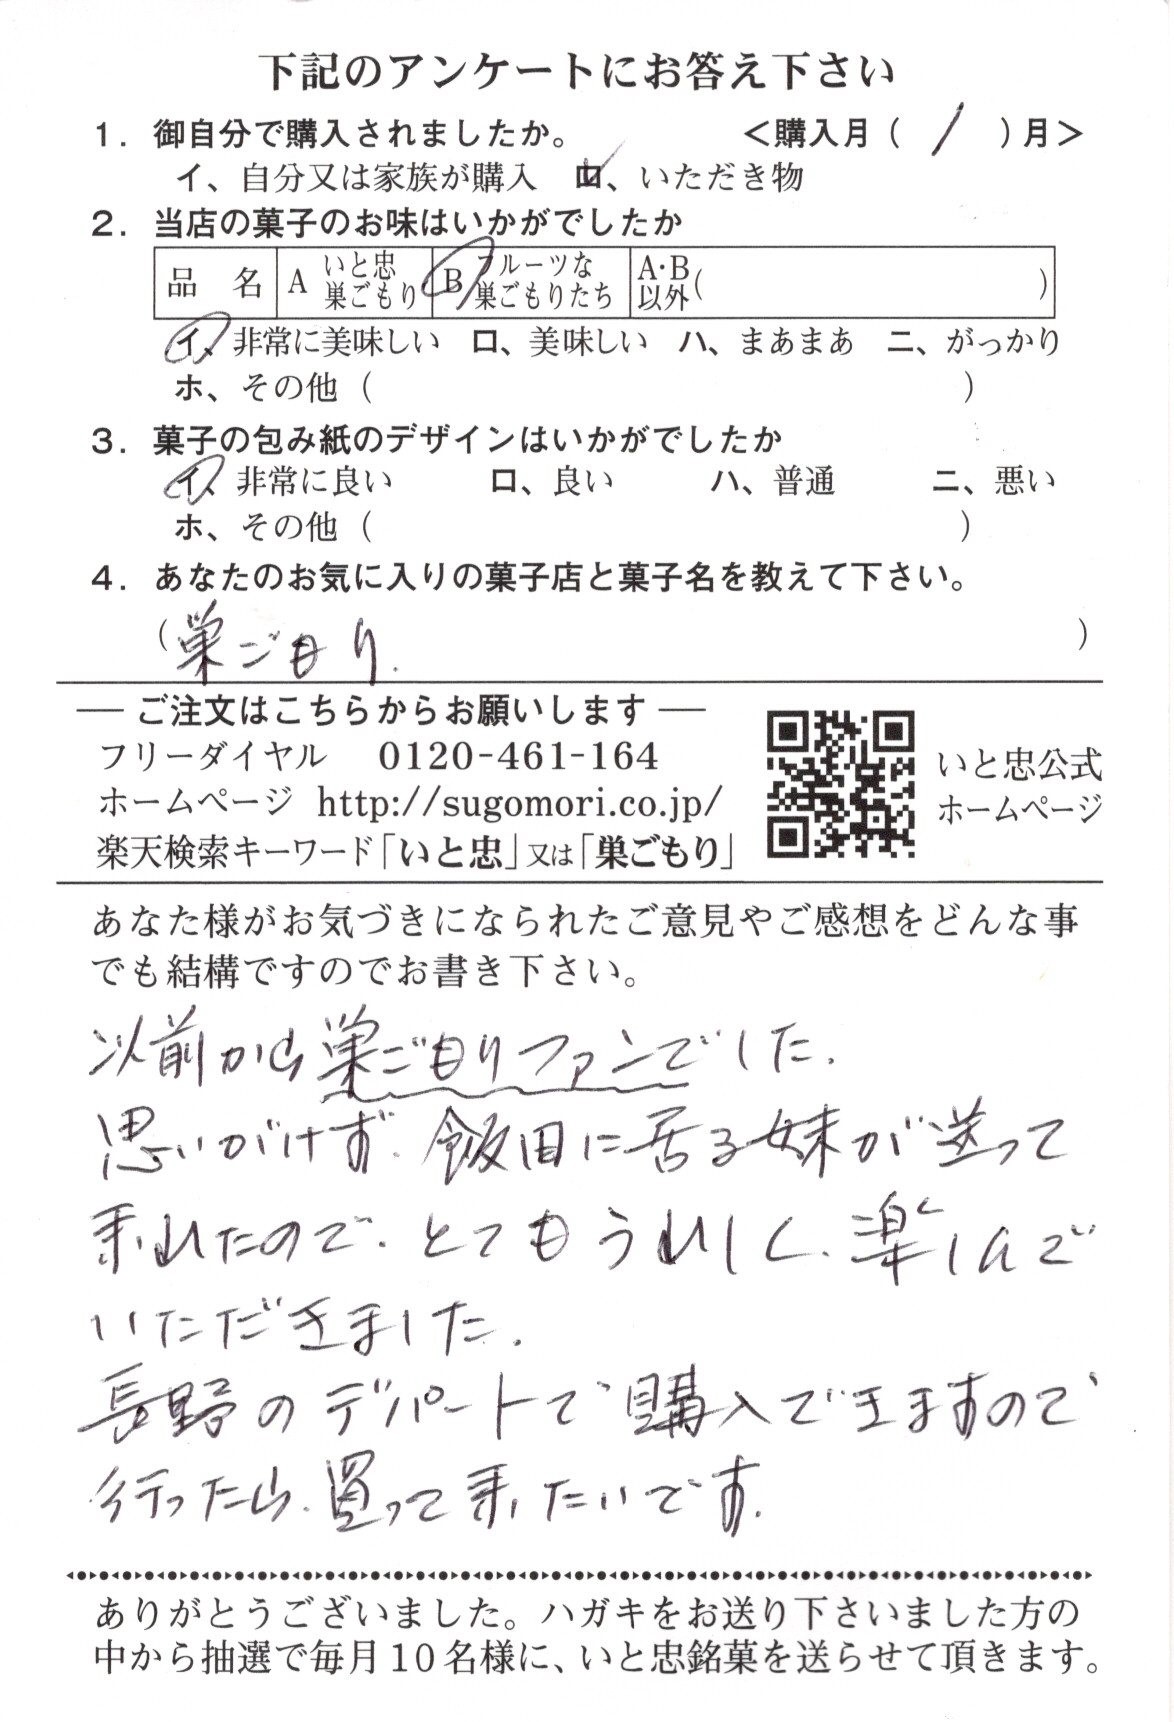 下記のアンケートにお答え下さい
1. 御自分で購入されましたか。 <購入月( 1 )月>
イ、自分又は家族が購入 ロ、いただき物
2. 当店の菓子のお味はいかがでしたか
品 名 A いと忠巣ごもり B フルーツな巣ごもりたち A・B以外( )
イ、非常に美味しい ロ、美味しい ハ、まあまあ ニ、がっかり
ホ、その他( )
3. 菓子の包み紙のデザインはいかがでしたか
イ、非常に良い ロ、良い ハ、普通 ニ、悪い
ホ、その他( )
4. あなたのお気に入りの菓子店と菓子名を教えて下さい。
(巣ごもり. )
― ご注文はこちらからお願いします ―
フリーダイヤル 0120-461-164
ホームページ http://sugomori.co.jp/
楽天検索キーワード「いと忠」又は「巣ごもり」
いと忠公式
ホームページ
あなた様がお気づきになられたご意見やご感想をどんな事
でも結構ですのでお書き下さい。
以前から巣ごもりファンでした.
思いがけず、飯田に居る妹が送って
来れたので、とてもうれしく、楽しんで
いただきました.
長野のデパートで購入できますので
行ったら、買って来たいです.
ありがとうございました。ハガキをお送り下さいました方の
中から抽選で毎月10名様に、いと忠銘菓を送らせて頂きます。